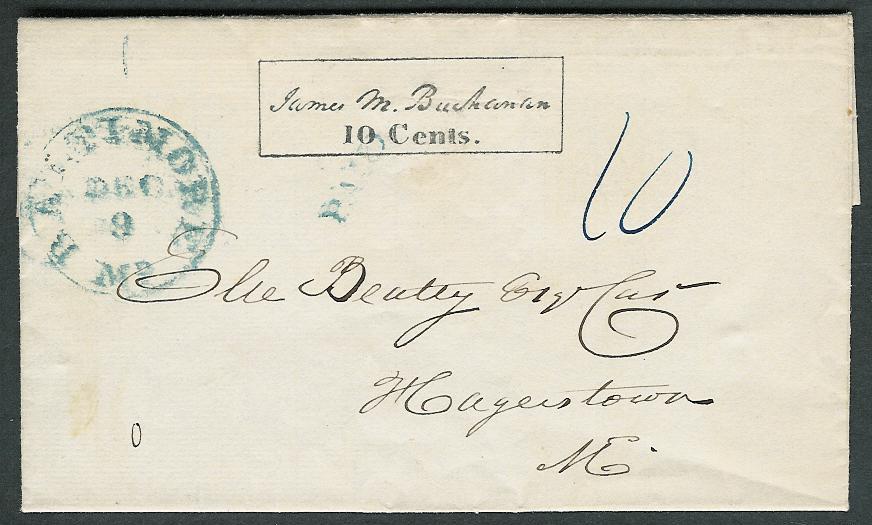 James M. Buchanan
10 Cents.
BALTIMORE
DEC
9
Md
PAID
10
Elie Beatty Esqr Cas
Hagerstown
Md